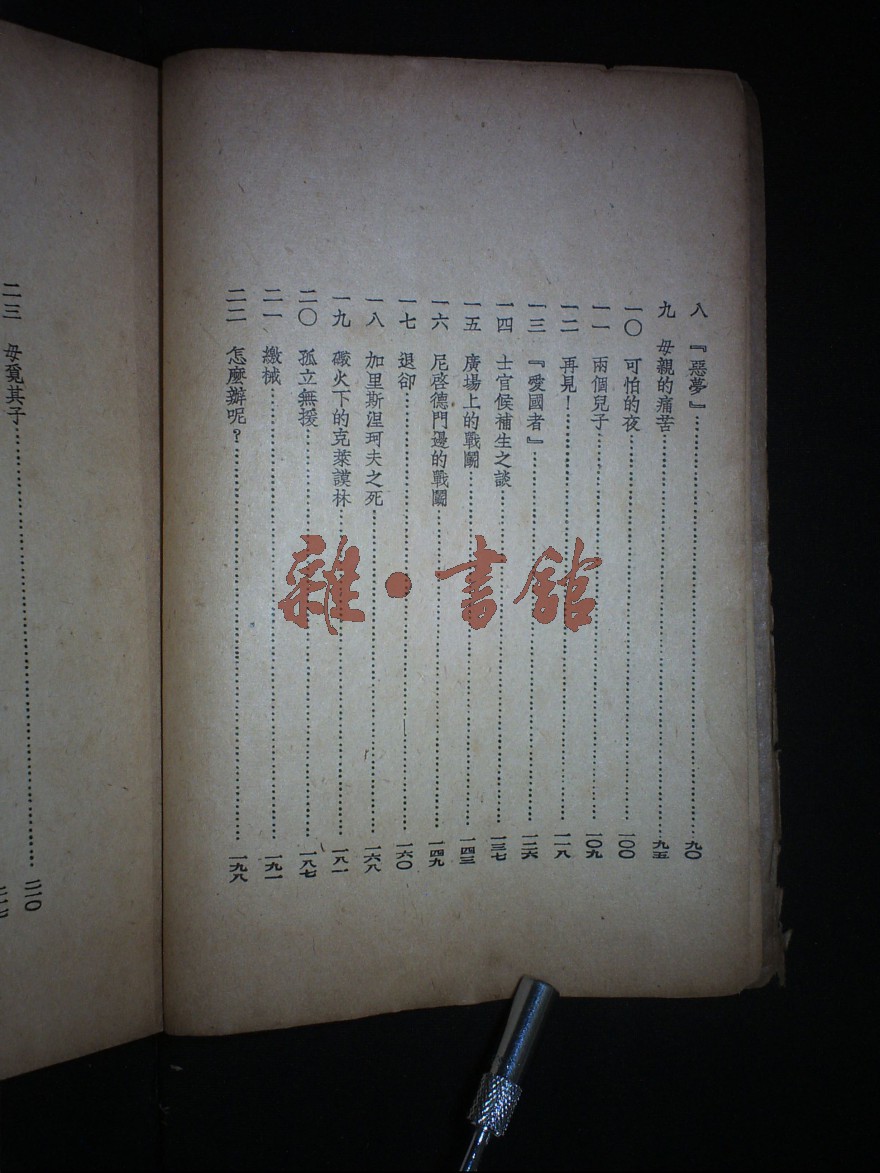 八 『惡夢』……九〇
九 母親的痛苦……九五
一〇 可怕的夜……一〇〇
一一 兩個兒子……一〇九
一二 再見!……一一八
一三 『愛國者』……一二六
一四 士官候補生之談……一三七
一五 廣場上的戰鬭……一四三
一六 尼啓德門邊的戰鬭……一四九
一七 退卻……一六〇
一八 加里斯涅珂夫之死……一六八
一九 礮火下的克萊謨林……一八一
二〇 孤立無援……一八七
二一 繳械……一九一
二二 怎麼辦呢?……一九八
二三 母覓其子……二一〇
雜·書館